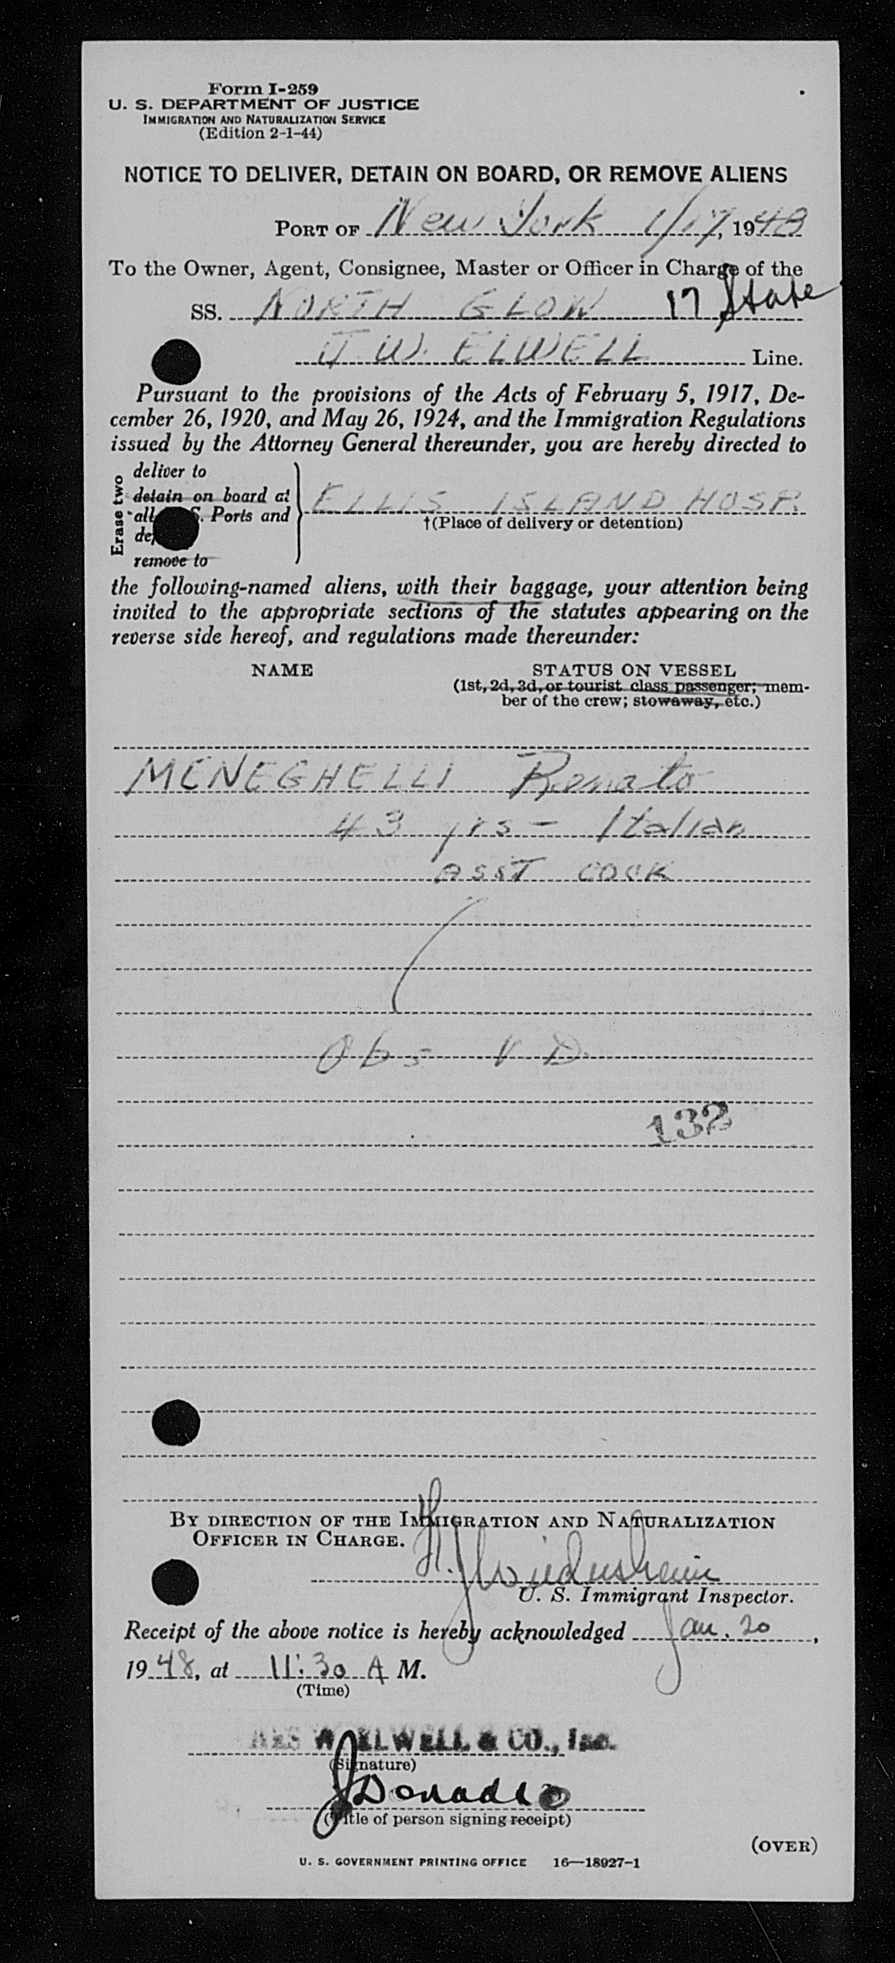 Form I-259
U. S. DEPARTMENT OF JUSTICE
IMMIGRATION AND NATURALIZATION SERVICE
(Edition 2-1-44)
NOTICE TO DELIVER, DETAIN ON BOARD, OR REMOVE ALIENS
PORT OF New York 1/17, 1948
To the Owner, Agent, Consignee, Master or Officer in Charge of the
SS. NORTH GLOW 17 State
J W. ELWELL Line.
Pursuant to the provisions of the Acts of February 5, 1917, De-
cember 26, 1920, and May 26, 1924, and the Immigration Regulations
issued by the Attorney General thereunder, you are hereby directed to
Erase two
deliver to
detain on board at
all U.S. Ports and
remove to
ELLIS ISLAND HOSP.
†(Place of delivery or detention)
the following-named aliens, with their baggage, your attention being
invited to the appropriate sections of the statutes appearing on the
reverse side hereof, and regulations made thereunder:
NAME STATUS ON VESSEL
(1st, 2d, 3d, or tourist class passenger; mem-
ber of the crew; stowaway, etc.)
MENEGHELLI Renato
43 yrs - Italian
ASST COOK
Obs V D.
132
BY DIRECTION OF THE IMMIGRATION AND NATURALIZATION
OFFICER IN CHARGE.
U. S. Immigrant Inspector.
Receipt of the above notice is hereby acknowledged Jan. 20,
1948, at 11:30 A M.
(Time)
W ELWELL & CO., Inc.
(Signature)
J Donadio
(Title of person signing receipt)
(OVER)
U. S. GOVERNMENT PRINTING OFFICE 16—18927-1